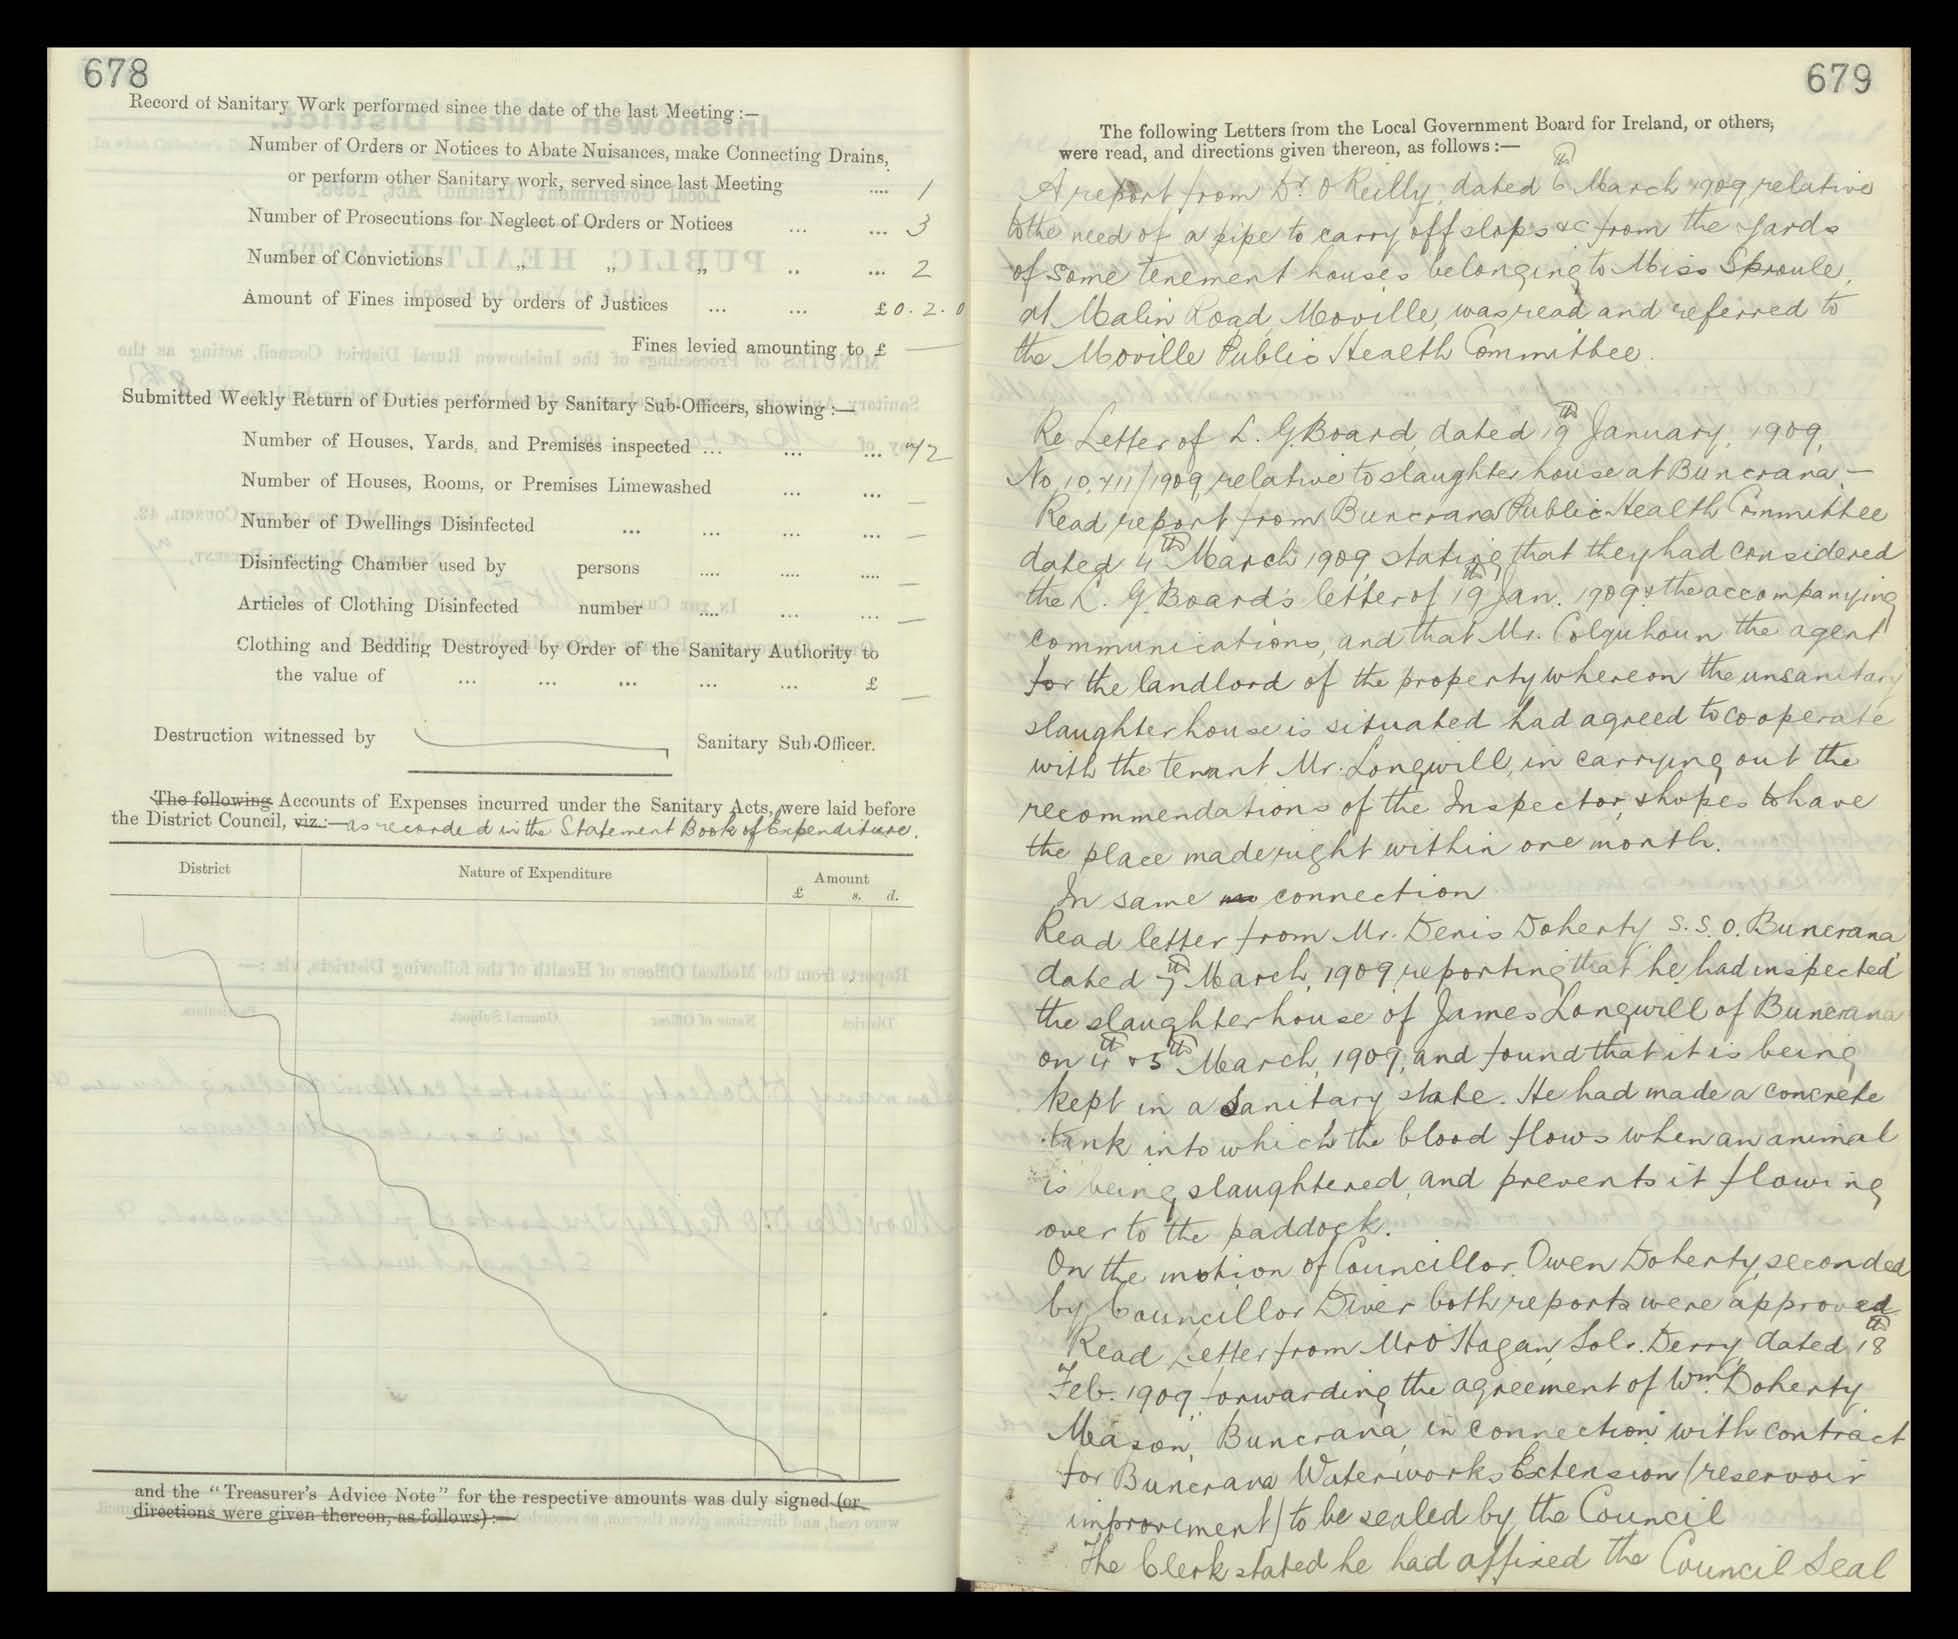 678
Record of Sanitary Work performed since the date of the last Meeting :—
Number of Orders or Notices to Abate Nuisances, make Connecting Drains,
or perform other Sanitary work, served since last Meeting .... 1
Number of Prosecutions for Neglect of Orders or Notices ... ... 3
Number of Convictions „ „ „ .. ... 2
Amount of Fines imposed by orders of Justices ... ... £0.2.0
Fines levied amounting to £ —
Submitted Weekly Return of Duties performed by Sanitary Sub-Officers, showing :—
Number of Houses, Yards, and Premises inspected ... ... ... 42
Number of Houses, Rooms, or Premises Limewashed ... ... —
Number of Dwellings Disinfected ... ... ... ... —
Disinfecting Chamber used by persons .... .... .... —
Articles of Clothing Disinfected number .... ... ... —
Clothing and Bedding Destroyed by Order of the Sanitary Authority to
the value of ... ... ... ... ... £ —
Destruction witnessed by Sanitary Sub-Officer.
The following Accounts of Expenses incurred under the Sanitary Acts, were laid before
the District Council, viz.:— as recorded in the Statement Book of Expenditure.
District Nature of Expenditure Amount
£ s. d.
and the "Treasurer's Advice Note" for the respective amounts was duly signed (or
directions were given thereon, as follows) :—
679
The following Letters from the Local Government Board for Ireland, or others,
were read, and directions given thereon, as follows :—
A report from Dr O'Reilly, dated 6th March 1909, relative
to the need of a pipe to carry off slops &c from the yards
of some tenement houses belonging to Miss Sproule,
at Malin Road, Moville, was read and referred to
the Moville Public Health Committee.
Re Letter of L. G. Board, dated 19th January, 1909,
No relative to slaughter house at Buncrana —
Read report from Buncrana Public Health Committee
dated 4th March 1909 stating that they had considered
the L. G. Board's letter of 19th Jan. 1909 & the accompanying
communications, and that Mr. Colquhoun the agent
for the landlord of the property whereon the unsanitary
slaughter house is situated had agreed to cooperate
with the tenant Mr. Longwill, in carrying out the
recommendations of the Inspector, & hopes to have
the place made right within one month.
In same connection
Read letter from Mr. Denis Doherty S.S.O. Buncrana
dated 7th March, 1909 reporting that he had inspected
the slaughter house of James Longwill of Buncrana
on 4th & 5th March, 1909, and found that it is being
kept in a sanitary state. He had made a concrete
tank into which the blood flows when an animal
is being slaughtered, and prevents it flowing
over to the paddock.
On the motion of Councillor Owen Doherty, seconded
by Councillor Diver both reports were approved
Read Letter from Mr O'Hagan, Solr. Derry, dated 18th
Feb. 1909, forwarding the agreement of Wm. Doherty
Mason, Buncrana, in connection with contract
for Buncrana Waterworks Extension (reservoir
improvement) to be sealed by the Council
The Clerk stated he had affixed the Council Seal